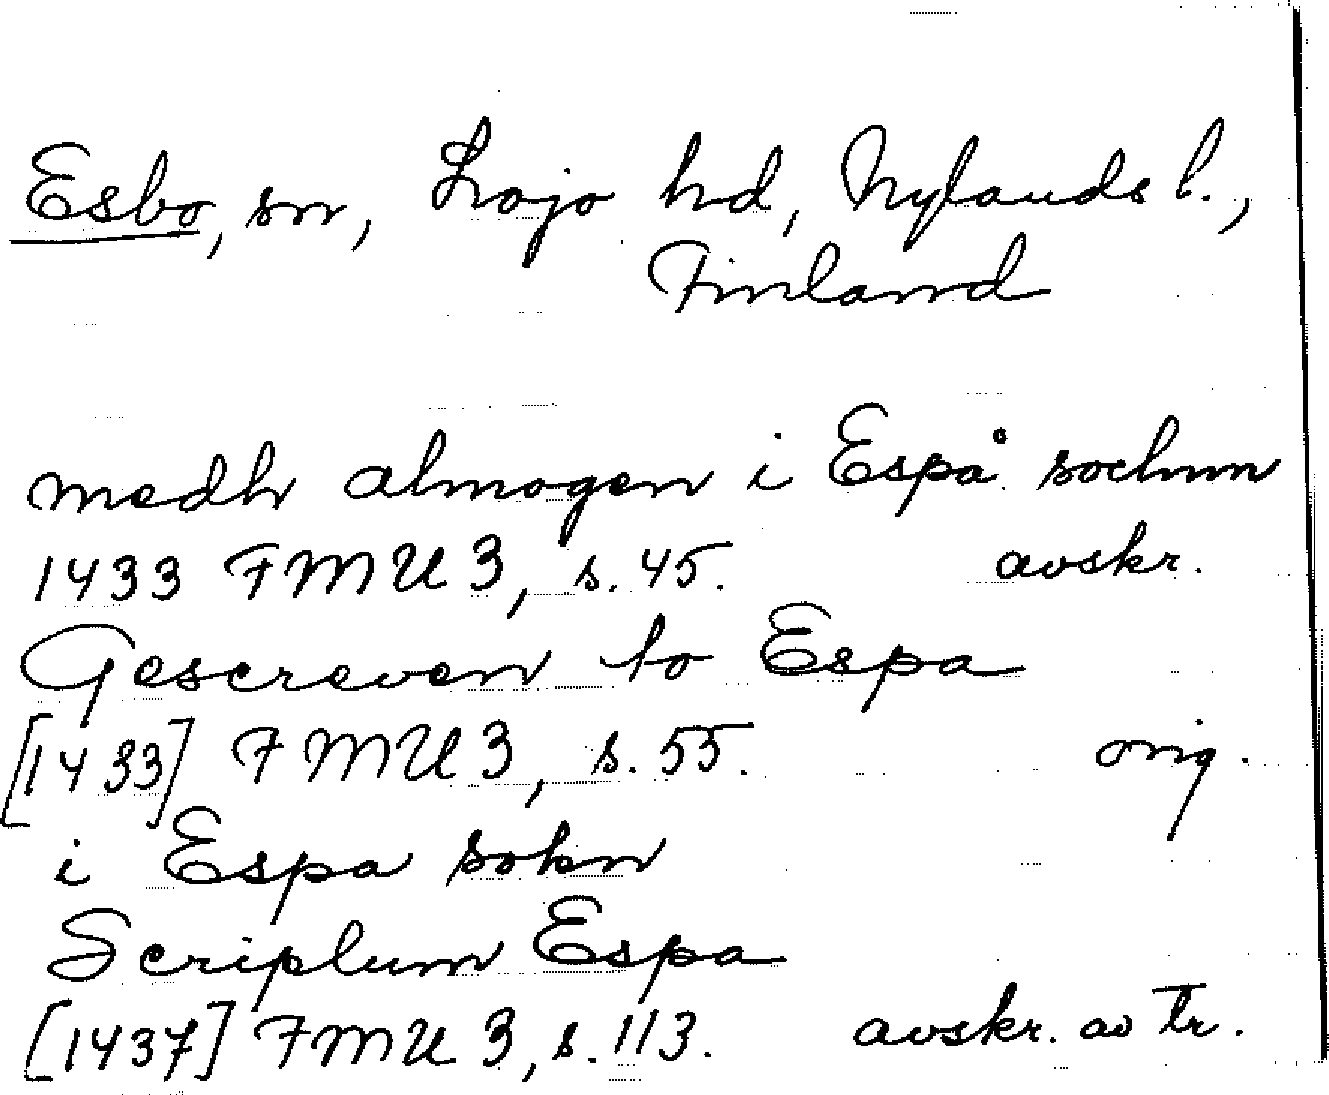 Esbo, sn, Lojo hd, Nylands l.,
Finland
medh almogen i Espå sochnn
1433 FMU 3, s. 45. avskr.
Gescreven to Espa
[1433] FMU 3, s. 55. orig.
i Espa sokn
Scriptum Espa
[1437] FMU 3, s. 113. avskr. av tr.